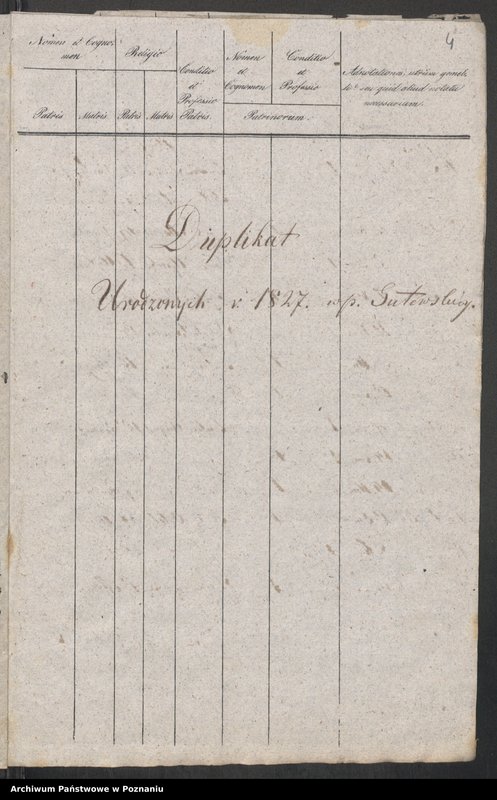 4
Nomen et Cogno-
men
Religio
Conditio
et
Professio
Patris.
Nomen
et
Cognomen
Conditio
et
Professio
Adnotationes, utrum gemel-
li et seu quid aliud notatu
necessarium.
Patris
Matris
Patris
Matris
Patrinorum.
Duplikat
Urodzonych r. 1827. w p. Gutowskiey.
Archiwum Państwowe w Poznaniu